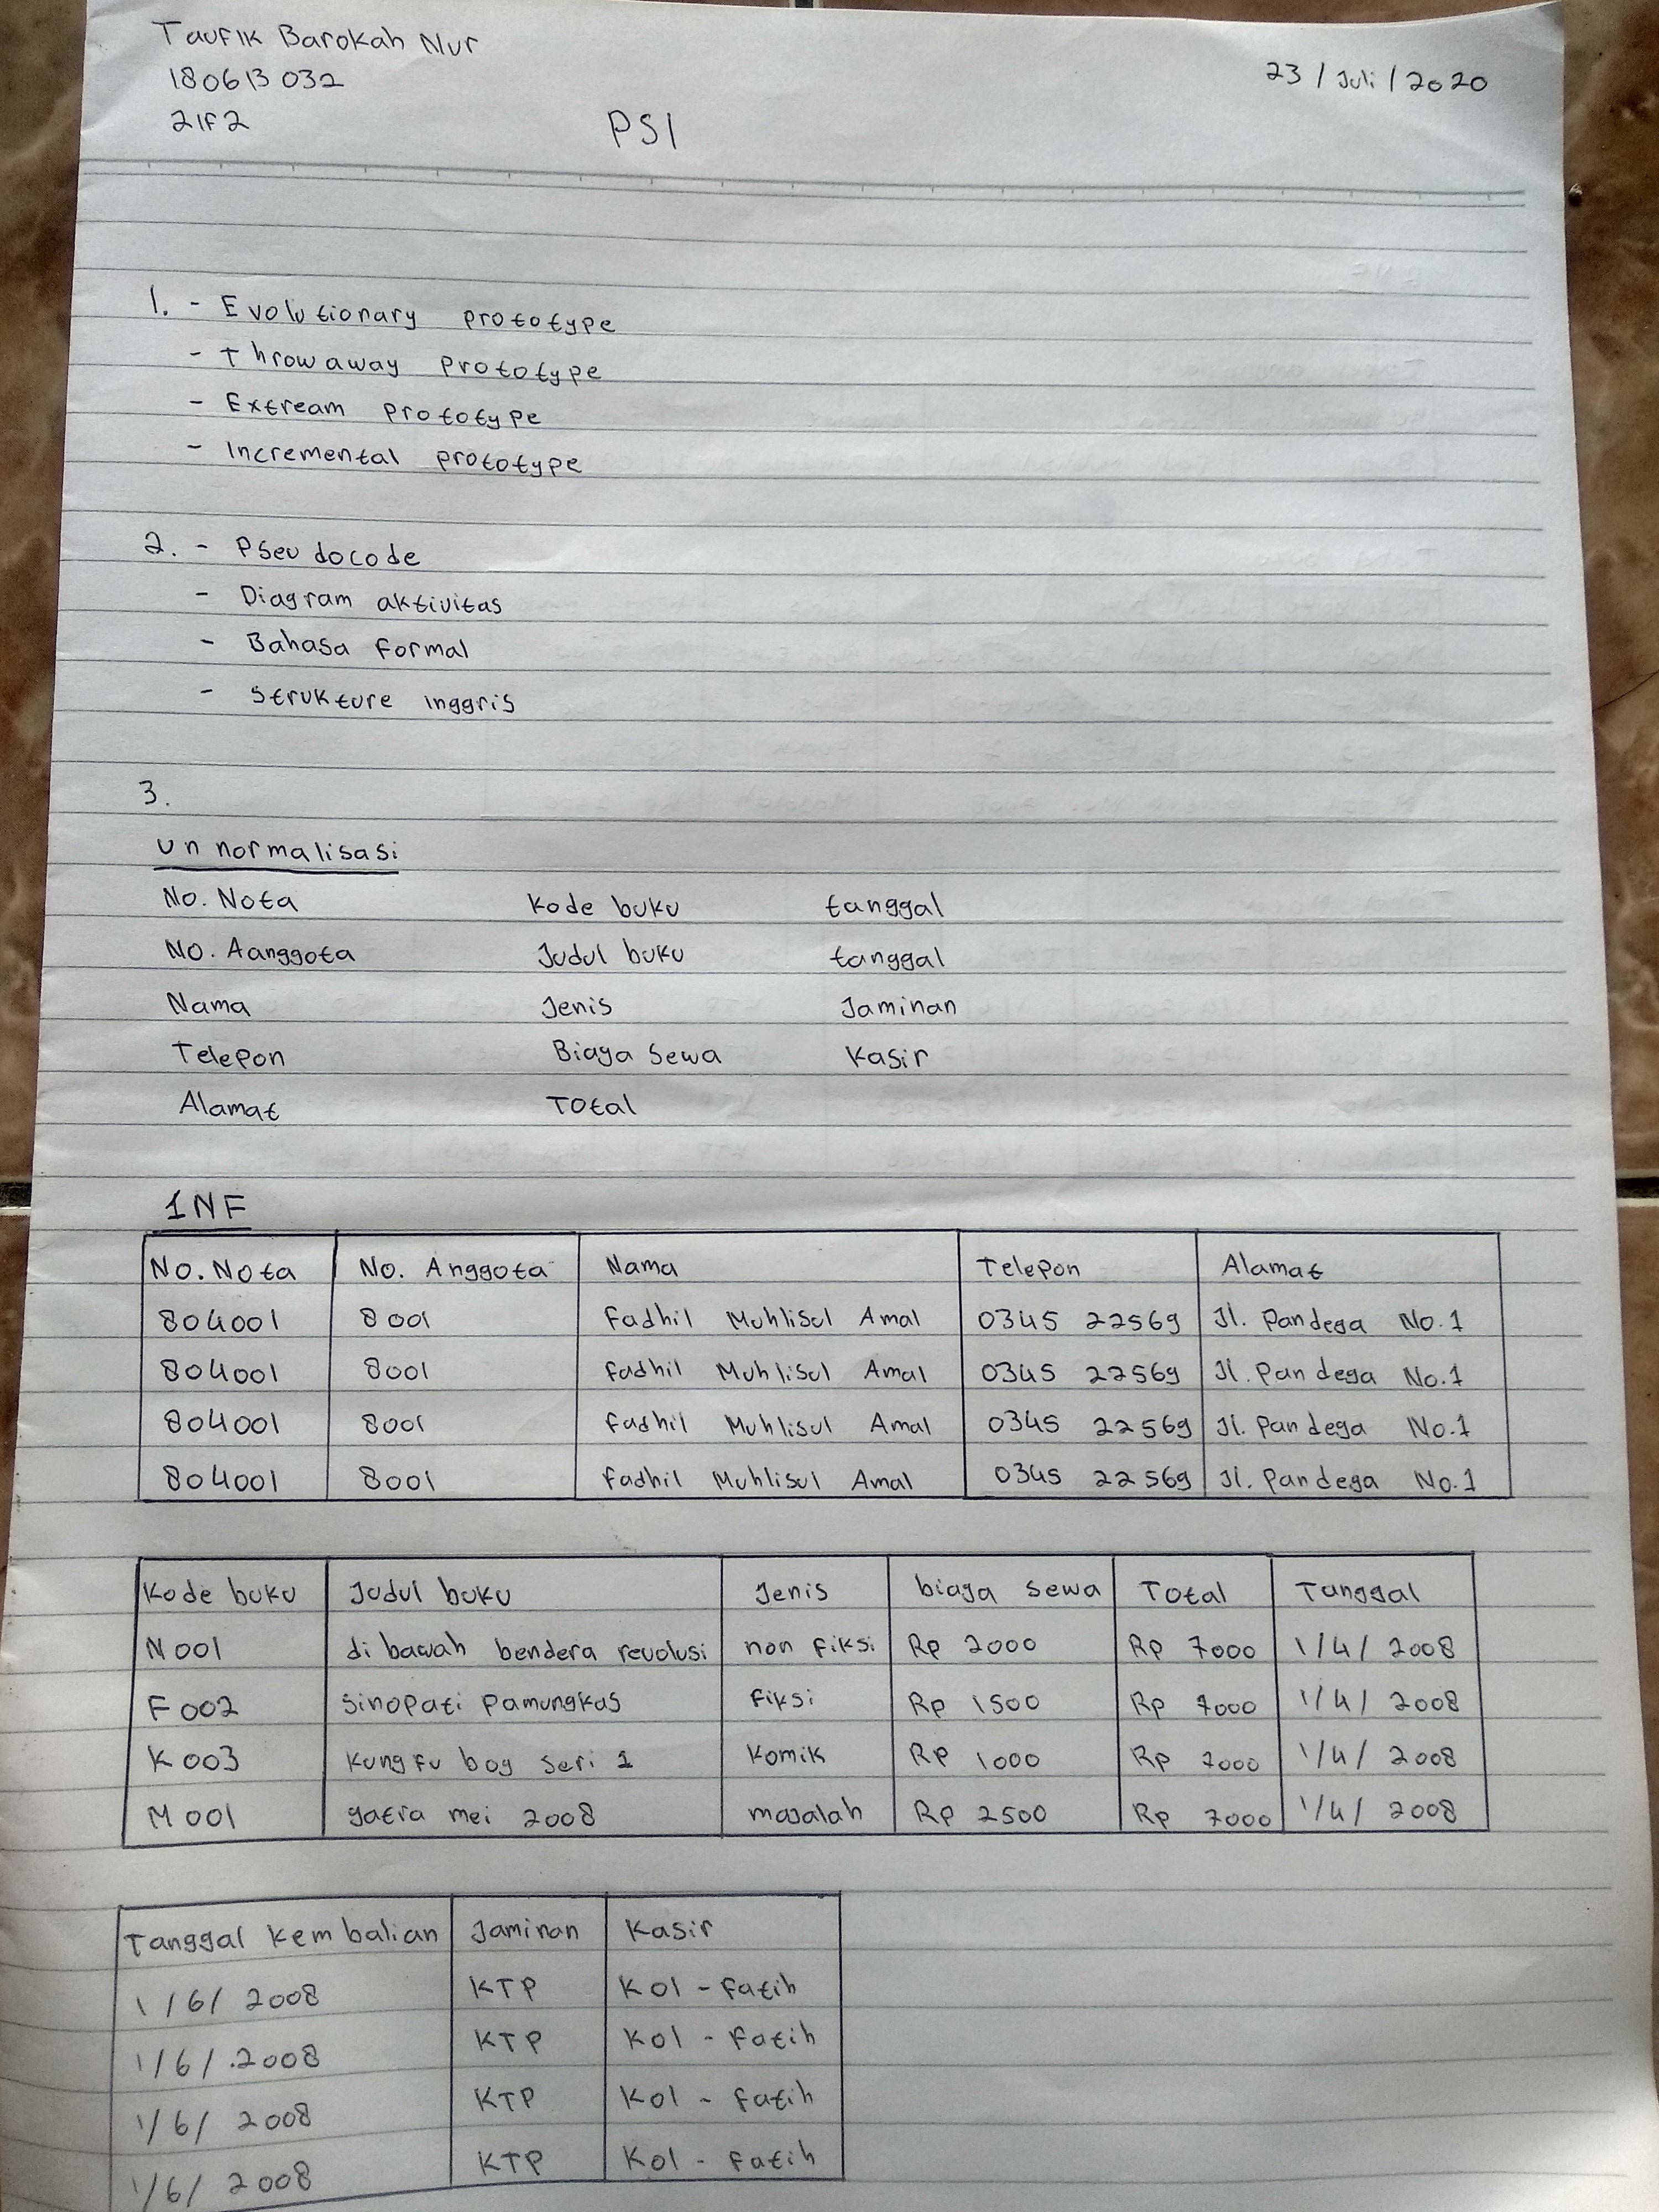 Taufik Barokah Nur
180613032
23 / Juli / 2020
2IF2
PSI
1. - Evolutionary prototype
- Throwaway prototype
- Extream prototype
- Incremental prototype
2. - Pseudocode
- Diagram aktivitas
- Bahasa formal
- Strukture inggris
3.
Un normalisasi
No. Nota Kode buku tanggal
No. Aanggota Judul buku tanggal
Nama Jenis Jaminan
Telepon Biaga sewa Kasir
Alamat Total
1NF
No. Nota No. Anggota Nama Telepon Alamat
804001 8001 Fadhil Muhlisul Amal 0345 22569 Jl. Pandega No.1
804001 8001 Fadhil Muhlisul Amal 0345 22569 Jl. Pandega No.1
804001 8001 Fadhil Muhlisul Amal 0345 22569 Jl. Pandega No.1
804001 8001 Fadhil Muhlisul Amal 0345 22569 Jl. Pandega No.1
Kode buku Judul buku Jenis biaga sewa Total Tanggal
N001 di bawah bendera revolusi non fiksi Rp 2000 Rp 7000 1/4/ 2008
F002 Sinopati Pamungkas fiksi Rp 1500 Rp 7000 1/4/ 2008
K003 Kungfu bog seri 1 Komik Rp 1000 Rp 7000 1/4/ 2008
M001 gatra mei 2008 majalah Rp 2500 Rp 7000 1/4/ 2008
Tanggal Kembalian Jaminan Kasir
1/6/ 2008 KTP Kol - fatih
1/6/ 2008 KTP Kol - fatih
1/6/ 2008 KTP Kol - fatih
1/6/ 2008 KTP Kol - fatih